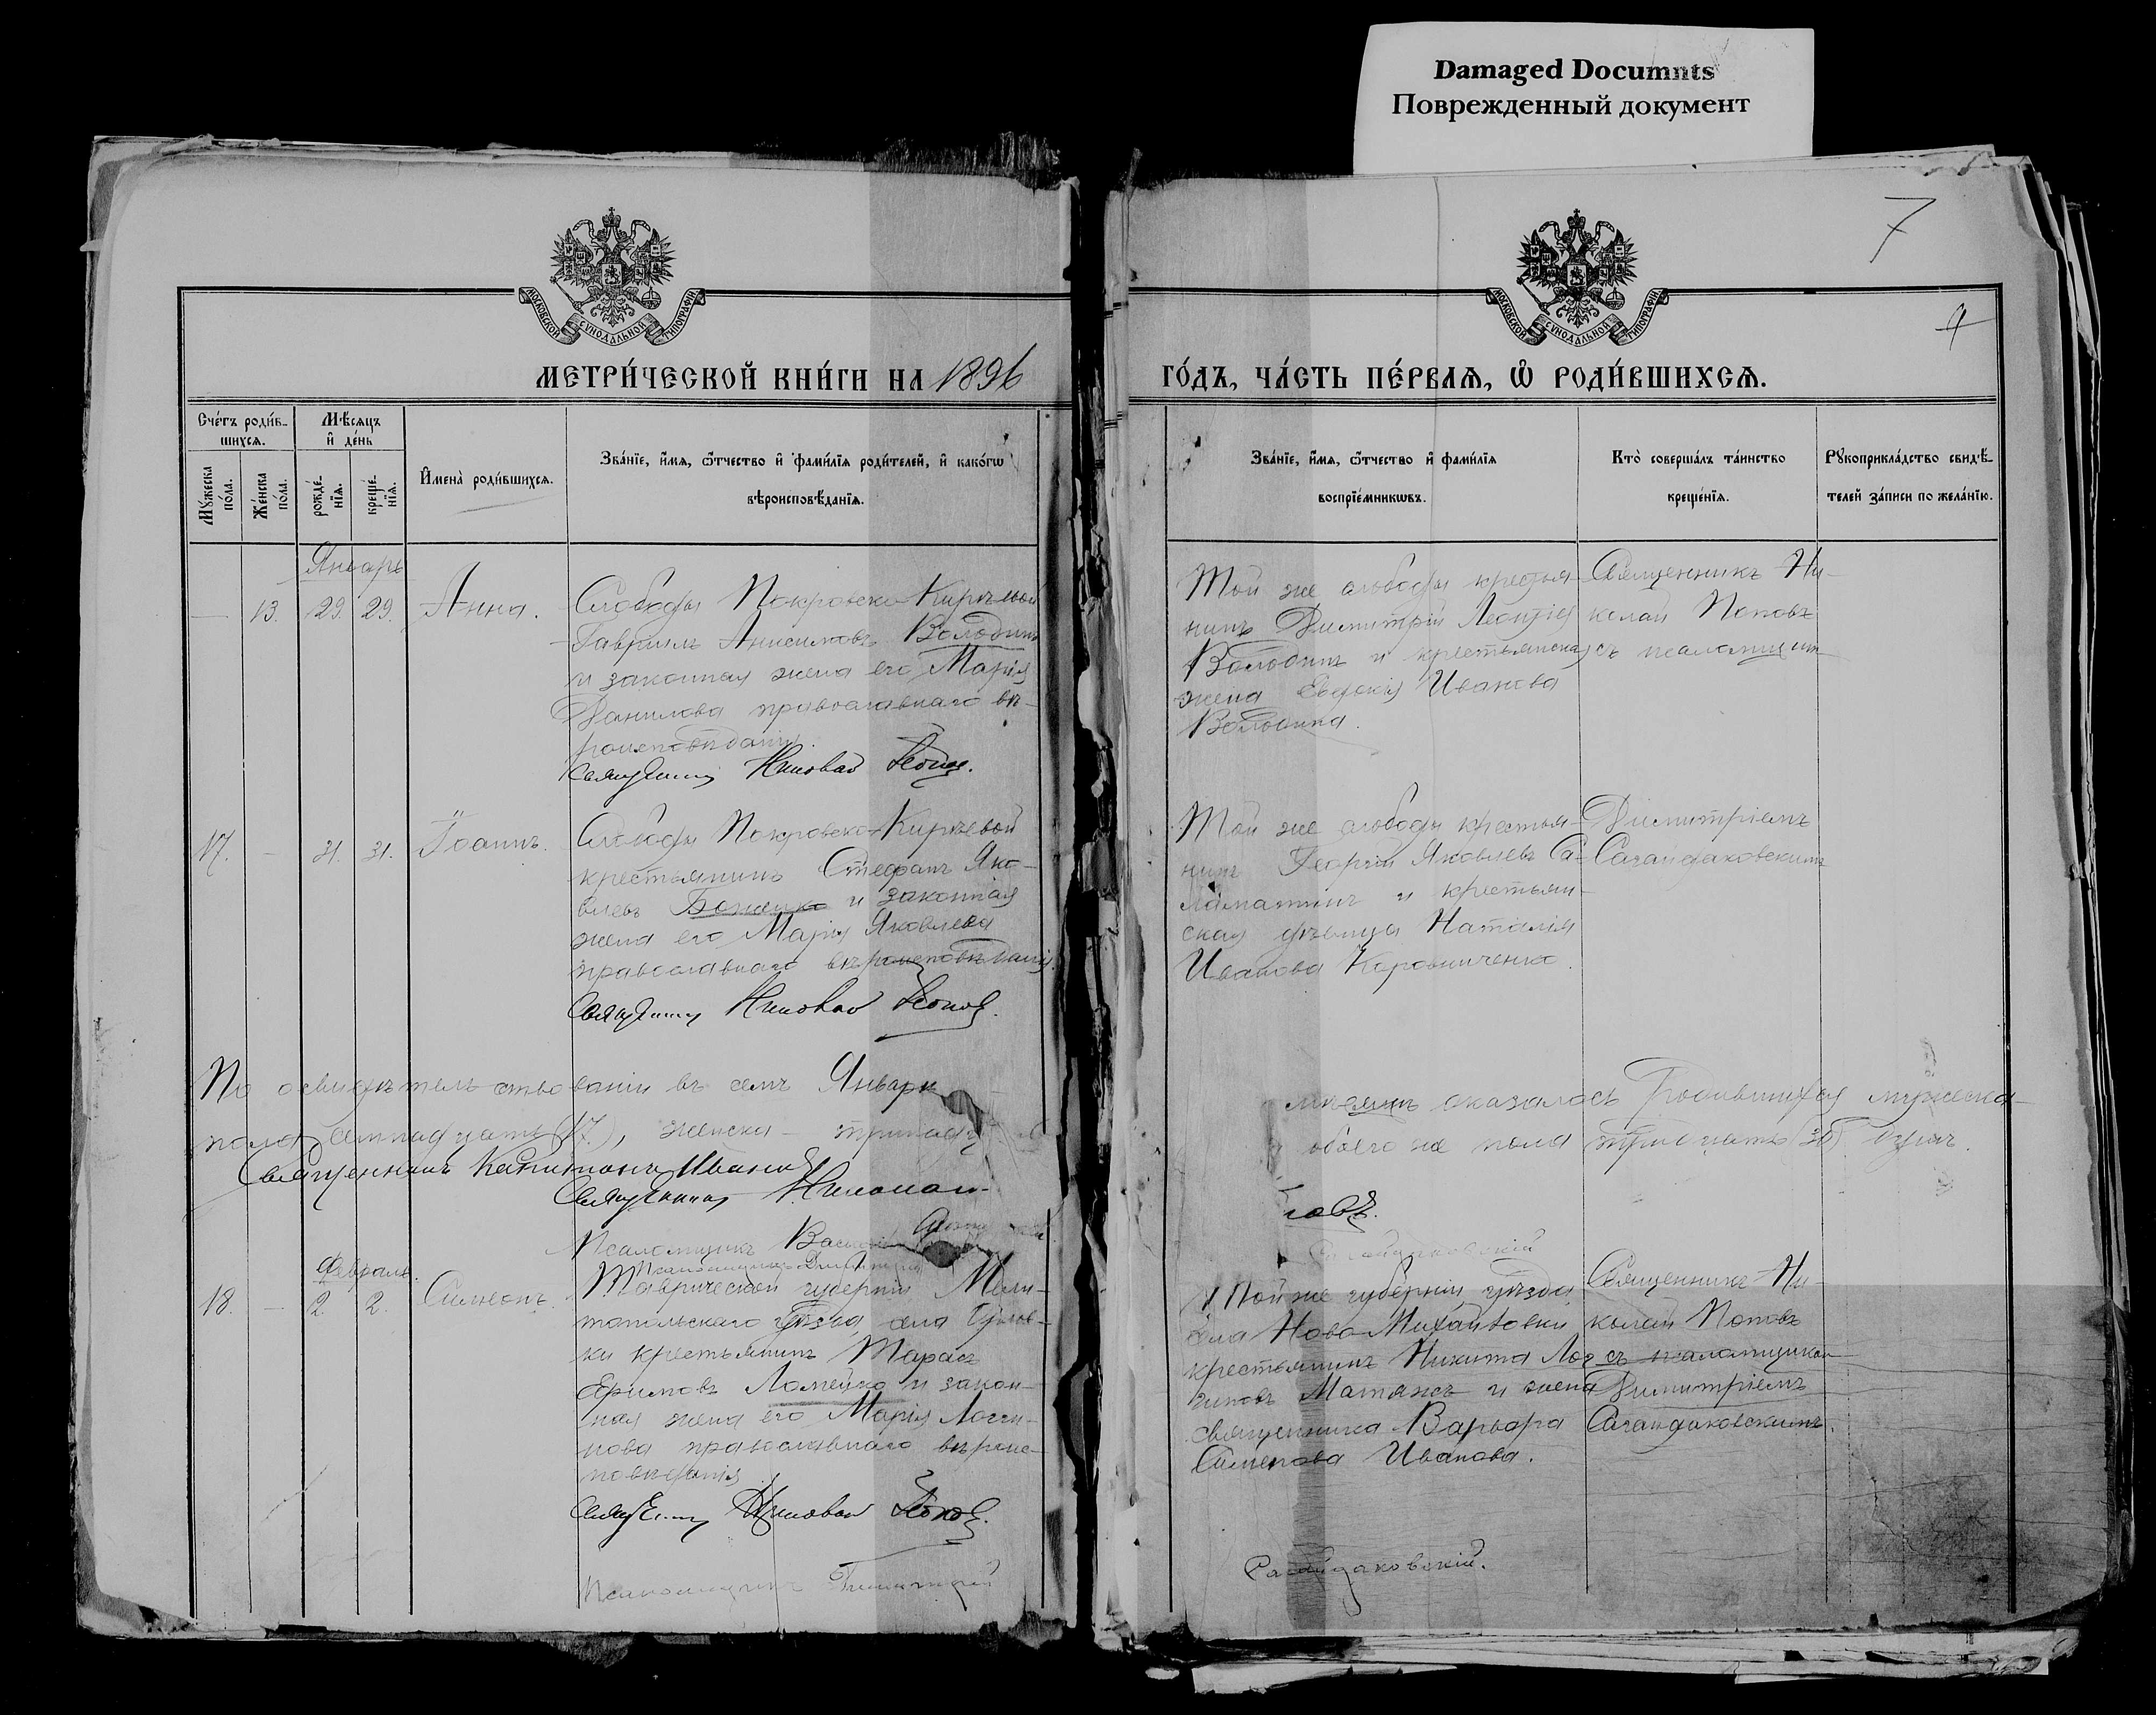 Damaged Documnts
Поврежденный документ
7
9
МОСКОВСКОЙ СѴНОДАЛЬНОЙ ТИПОГРАФІИ
МОСКОВСКОЙ СѴНОДАЛЬНОЙ ТИПОГРАФІИ
МЕТРИ́ЧЕСКОЙ КНИ́ГИ НА 1896
ГО́ДЪ, ЧА́СТЬ ПЕ́РВАѦ, Ѽ РОДИ́ВШИХСѦ.
Сче́тъ роди́в-
шихсѧ.
Мꙋ́жеска по́ла.
Же́нска по́ла.
Мѣ́сѧцъ
и҆ де́нь
рожде́-
нїѧ.
креще́-
нїѧ.
И҆мена̀ роди́вшихсѧ.
Зва́нїе, и҆́мѧ, ѻ҆́тчество и҆ фами́лїѧ роди́телей, и҆ како́гѡ
вѣроисповѣ́данїѧ.
Зва́нїе, и҆́мѧ, ѻ҆́тчество и҆ фами́лїѧ
воспрїе́мникѡвъ.
Кто̀ соверша́лъ та́инство
креще́нїѧ.
Рꙋкоприкла́дство свидѣ́-
телей за́писи по жела́нїю.
Январь
— 13. 29. 29. Анна.
Слободы Покровско-Киреевой
Гавриилъ Анисимовъ Володинъ
и законная жена его Марія
Данилова православнаго вѣ-
роисповѣданія.
Священникъ Николай Поповъ.
Той же слободы крестья-
нинъ Димитрій Леонтіев
Володинъ и крестьянская
жена Евдокія Иванова
Володина.
Священникъ Ни-
колай Поповъ
съ псаломщик
17. — 31. 31. Іоаннъ.
Слободы Покровско-Киреевой
крестьянинъ Стефанъ Яко-
влевъ и законная
жена его Марія Яковлева
православнаго вѣроисповѣданія.
Священникъ Николай Поповъ.
Той же слободы крестья-
нинъ Георгій Яковлевъ Са-
ламатинъ и крестьян-
ская дѣвица Наталія
Иванова
Димитріемъ
Сагайдаковскимъ
По освидѣтельствованіи въ семъ Январѣ
мѣсяцѣ оказалось родившихся мужеска
пола семнадцать (17), женска — тринадц
обоего же пола тридцать (30) душъ.
Священникъ Капитонъ Иванов
Священникъ Николай
повъ.
Псаломщикъ Васил
Псаломщикъ Димитрій
Сагайдаковскій
Февраль.
18. — 2. 2. Симеонъ.
Таврической губерніи Мели-
топольскаго уѣзда, села
ки крестьянинъ Тарасъ
Ефимовъ и закон-
ная жена его Марія Логги-
нова православнаго вѣроис-
повѣданія.
Священникъ Николай Поповъ.
Той же губерніи уѣзда,
села Ново-Михайловки
крестьянинъ Никита Лог-
гиновъ и жена
священника Варвара
Симеонова Иванова.
Священникъ Ни-
колай Поповъ
съ псаломщиком
Димитріемъ
Сагайдаковскимъ.
Псаломщикъ Димитрій
Сагайдаковскій.